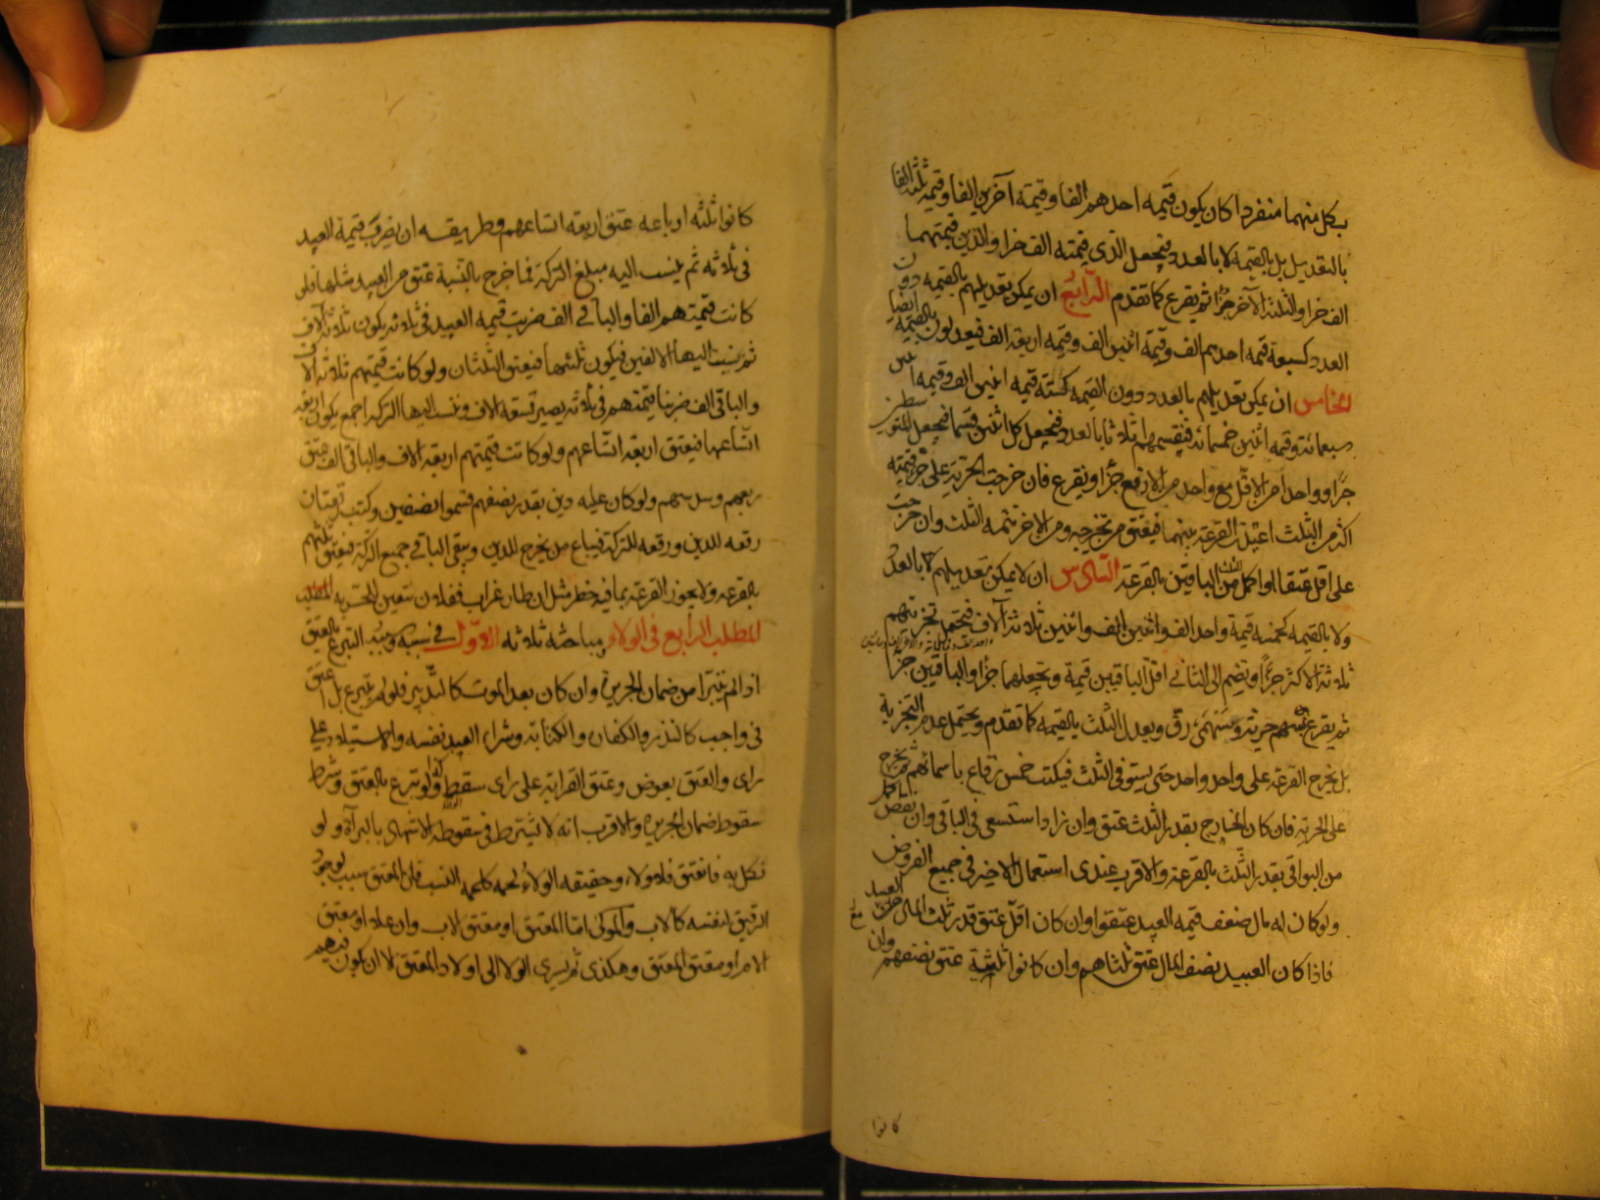 بكل منهما منفردا كان يكون قيمه احدهم الفا وقيمة آخرين الفا وقيمة ثلثه الفا
بالتعديل بل بالقيمه لا بالعدد فيجعل الذي قيمته الف جزا والذين قيمتهما
الف جزا والثلثة الآخر جزا ثم يقرع كما تقدم الرابع ان يمكن تعديلهم بالقيمه دون
العدد كسبعة قيمة احدهم الف وقيمة اثنين الف وقيمه اربعة الف فيعدلون بالقيمة ايضا
الخامس ان يمكن تعديلهم بالعدد دون القيمه كستة قيمه اثنين الف وقيمه اثنين
سبعمائة وقيمه اثنين خمسمائه فيقسمهم اثلاثا بالعدد فيجعل كل اثنين قسما فيجعل المتوسطين
جزا وواحدا من الاقل مع واحد من الارفع جزا ويقرع فان خرجت الحرية على جزء قيمته
اكثر من الثلث اعيدت القرعة بينهما فيعتق من تخرجه ومن الاخر تتمه الثلث وان خرجت
على اقل عتقا واكمل الثلث من الباقين بالقرعة السادس ان لا يمكن تعديلهم لا بالعدد
ولا بالقيمه كخمسه قيمة واحد الف واثنين الف واثنين ثلاثة آلاف فيحتمل تجزيتهم
ثلاثة الاكثر جزءا ويضم الى الثاني اقل الباقيين قيمة ويجعلهما جزا والباقيين جزا
ثم يقرع بسهم حرية وسهمي رق ويعدل الثلث بالقيمه كما تقدم ويحتمل عدم التجزية
بل يخرج القرعة على واحد واحد حتى يستوفى الثلث فيكتب خمس رقاع باسمائهم ثم يخرج
على الحرية فان كان الخارج بقدر الثلث عتق وان زاد استسعى في الباقي وان نقص اكمل
من البواقي بقدر الثلث بالقرعة والاقرب عندي استعمال الاخير في جميع الفروض
ولو كان له مال ضعف قيمه العبيد عتقوا وان كان اقل عتق قدر ثلث المال من العبيد
فاذا كان العبيد نصف المال عتق ثلثاهم وان كانوا ثلثيه عتق نصفهم وان
كانوا
كانوا ثلثه ارباعه عتق اربعه اتساعهم وطريقه ان يضرب قيمة العبيد
في ثلاثه ثم ينسب اليه مبلغ التركة فما خرج بالنسبة عتق من العبيد مثلها فلو
كانت قيمتهم الفا والباقي الف ضربت قيمه العبيد في ثلاثه يكون ثلاثة آلاف
ثم ينسب اليها الالفين فيكون ثلثيها فيعتق الثلثان ولو كانت قيمتهم ثلاثه آلاف
والباقي الف ضربنا قيمتهم في ثلاثه يصير تسعة الاف وننسب اليها التركه اجمع يكون اربعة
اتساعها فيعتق اربعه اتساعهم ولو كانت قيمتهم اربعه الاف والباقي الف عتق
ربعهم وسدسهم ولو كان عليه دين بقدر نصفهم قسموا نصفين وكتب رقعتان
رقعه للدين ورقعه للتركة فيباع من يخرج للدين ويبقى الباقي جميع التركة فيعتق ثلثهم
بالقرعة ولا يجوز القرعة بما فيه خطر مثل ان طار غراب ففلان يتعين للحرية
المطلب الرابع في الولاء ومباحثه ثلاثه الاول في سببه وسببه التبرع بالعتق
اذا لم يتبرا من ضمان الجريرة وان كان بعد الموت كالتدبير فلو لم يتبرع بل اعتق
في واجب كالنذر والكفارة والكتابة وشراء العبد نفسه والاستيلاد على
راى والعتق بعوض وعتق القرابة على راى سقط ولو تبرع بالعتق وشرط
سقوط ضمان الجريرة والاقرب انه لا يشترط في سقوطه الاشهاد بالبراة ولو
نكل به فانعتق فلا ولاء وحقيقه الولاء لحمه كلحمه النسب فان المعتق سبب لوجود
الرقيق لنفسه كالاب والمولى اما المعتق او معتق الاب وان علا او معتق
الام او معتق المعتق وهكذى ثم يسرى الولا الى اولاد المعتق الا ان يكون فيهم